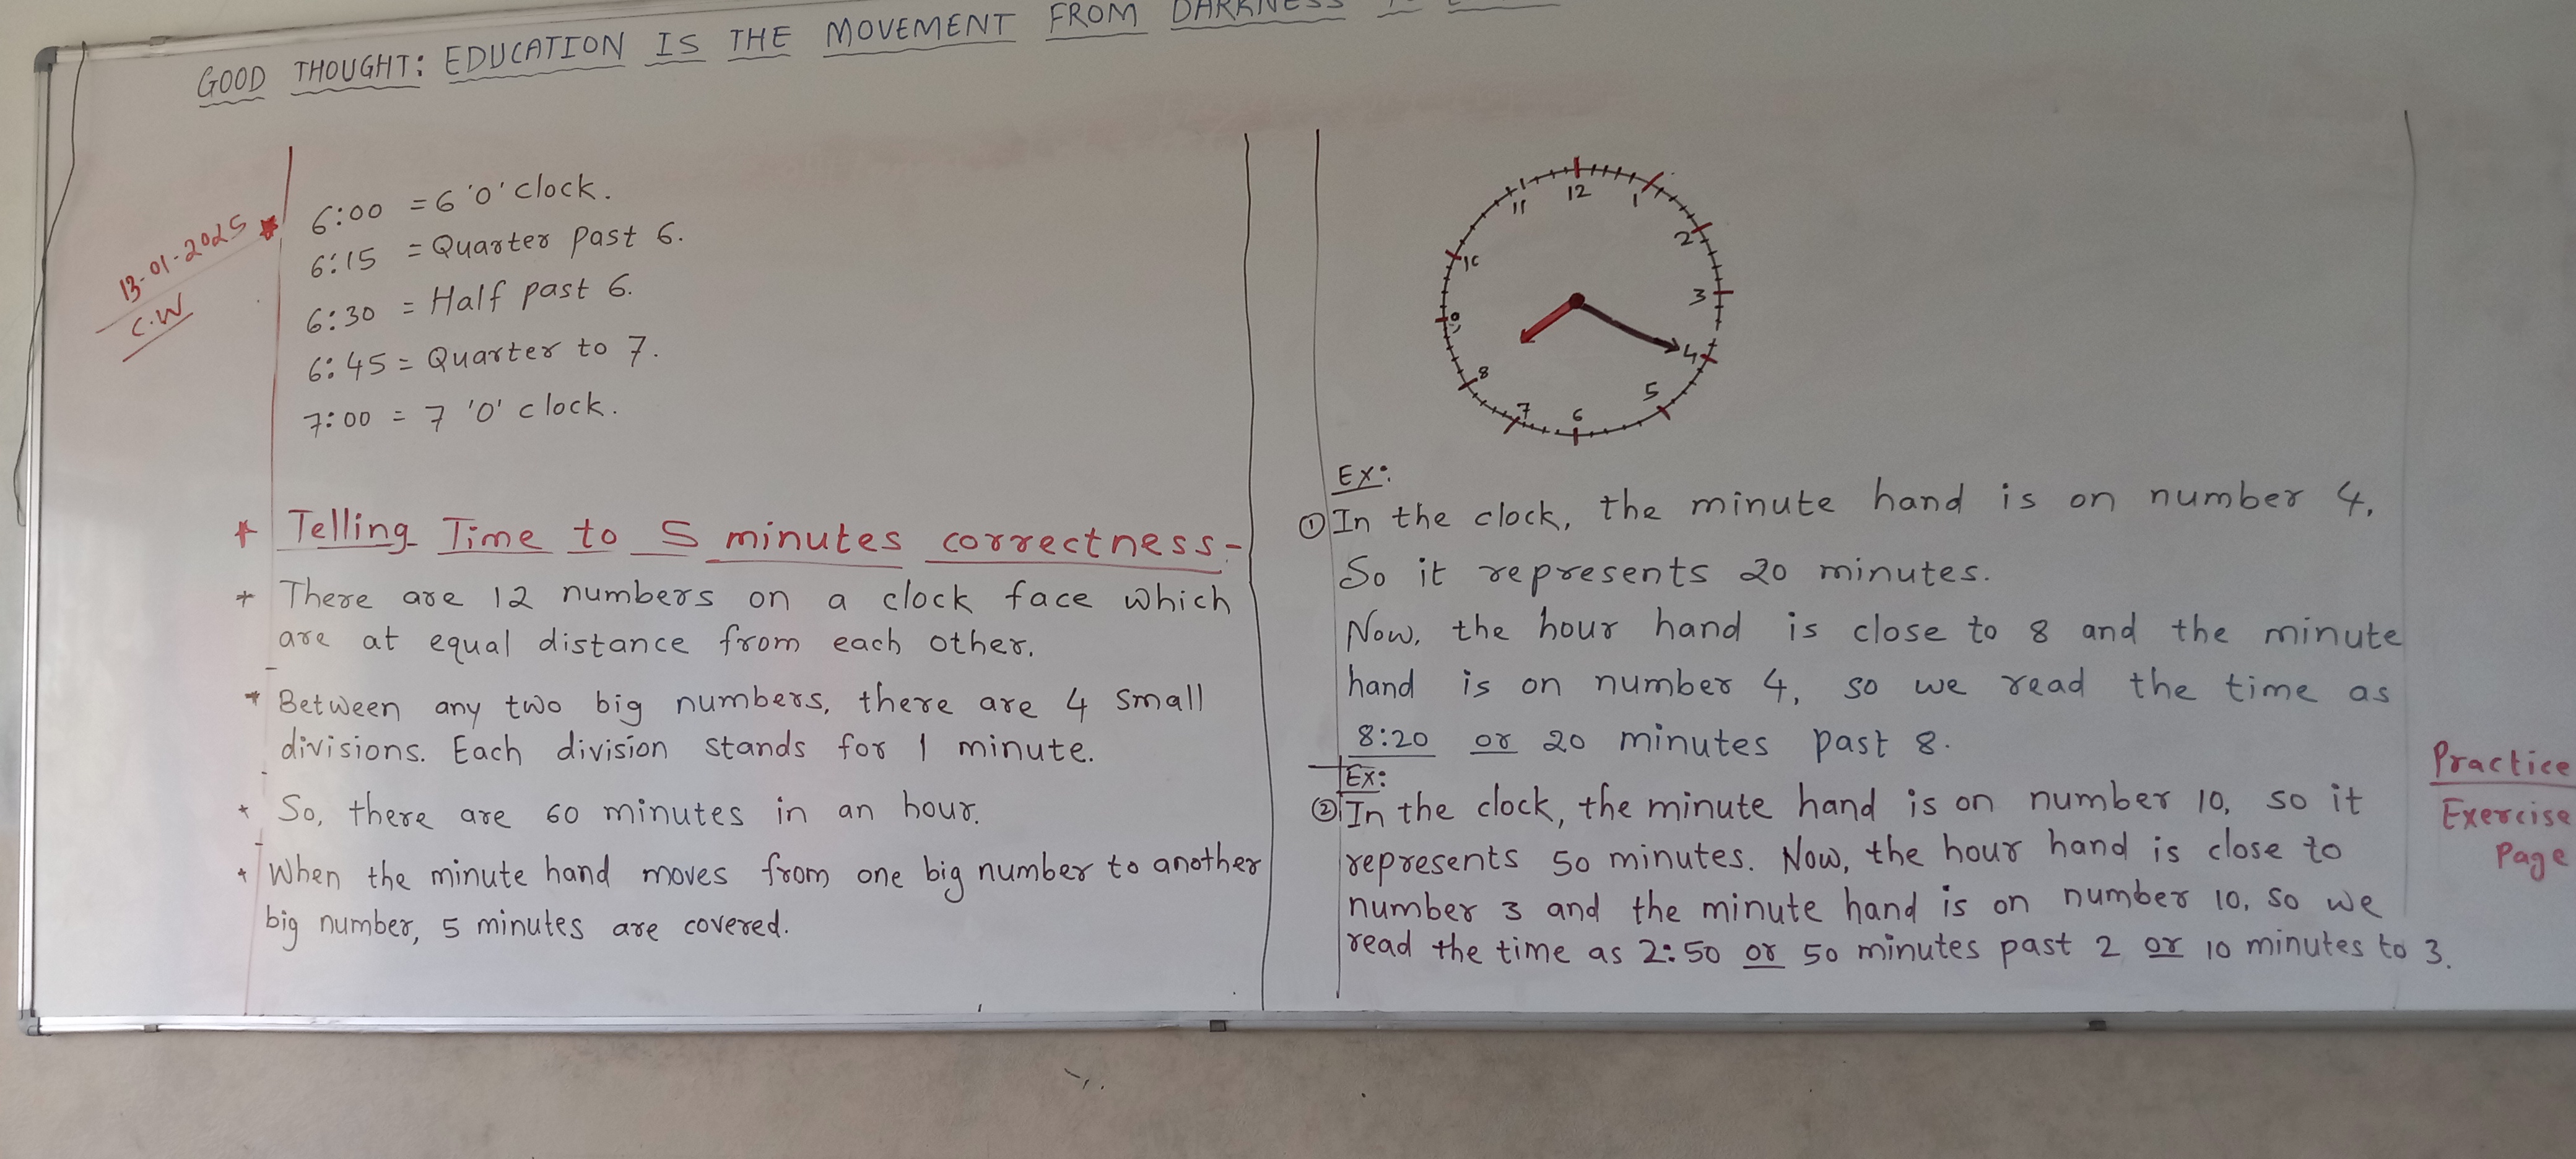 GOOD THOUGHT: EDUCATION IS THE MOVEMENT FROM DARKNESS
13-01-2025
C.W
6:00 = 6 'O' clock.
6:15 = Quarter past 6.
6:30 = Half past 6.
6:45 = Quarter to 7.
7:00 = 7 'O' clock.
* Telling Time to 5 minutes correctness-
* There are 12 numbers on a clock face which
are at equal distance from each other.
* Between any two big numbers, there are 4 small
divisions. Each division stands for 1 minute.
* So, there are 60 minutes in an hour.
* When the minute hand moves from one big number to another
big number, 5 minutes are covered.
12
1
2
3
4
5
6
7
8
9
10
11
Ex:
① In the clock, the minute hand is on number 4,
So it represents 20 minutes.
Now, the hour hand is close to 8 and the minute
hand is on number 4, so we read the time as
8:20 or 20 minutes past 8.
Ex:
② In the clock, the minute hand is on number 10, so it
represents 50 minutes. Now, the hour hand is close to
number 3 and the minute hand is on number 10, so we
read the time as 2:50 or 50 minutes past 2 or 10 minutes to 3.
Practice
Exercise
Page